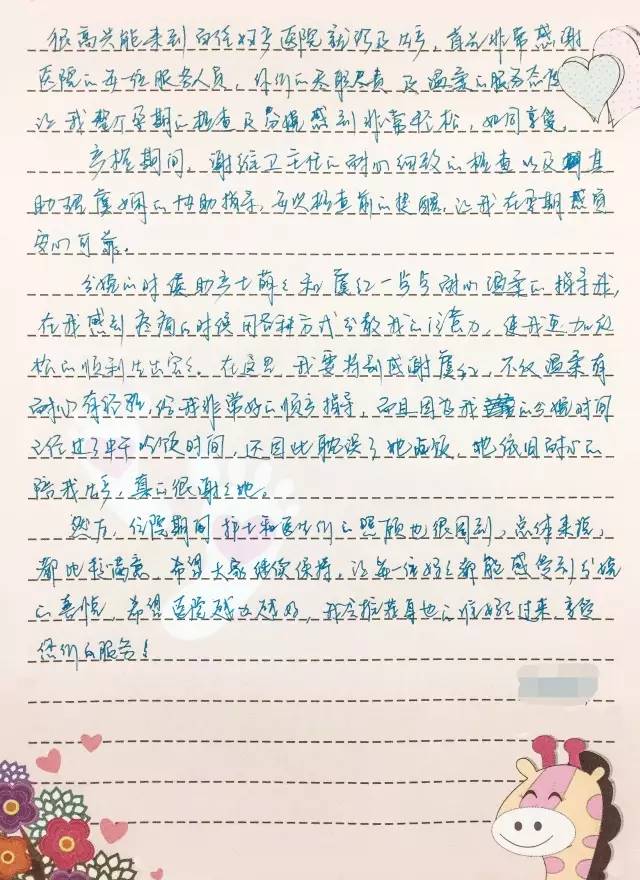 很高兴能来到百佳妇产医院就诊及生产，首先非常感谢
医院的每一位服务人员，你们的尽职尽责及温柔的服务态度
让我整个孕期的检查及分娩感到非常轻松，如同享受。
产检期间，谢维卫主任的耐心细致的检查以及其
助理虞娴的协助指导，每次检查前的提醒，让我在孕期感觉
安心可靠。
分娩的时候助产士萌萌和虞红一点点耐心温柔的指导我，
在我感到疼痛的时候用各种方式分散我的注意力，使我更加放
松的顺利生出宝宝。在这里我要特别感谢虞红，不仅温柔有
耐心有经验，给我非常好的顺产指导，而且因为我的分娩时间
已经过了中午吃饭时间，还因此耽误了她吃饭，她依旧耐心的
陪我生产，真的很谢谢她。
然后，住院期间护士和医生们的照顾也很周到，总体来说，
都比较满意，希望大家继续保持，让每一位妈妈都能感觉到分娩
的喜悦，希望医院越办越好，我会推荐身边的准妈妈过来享受
你们的服务！